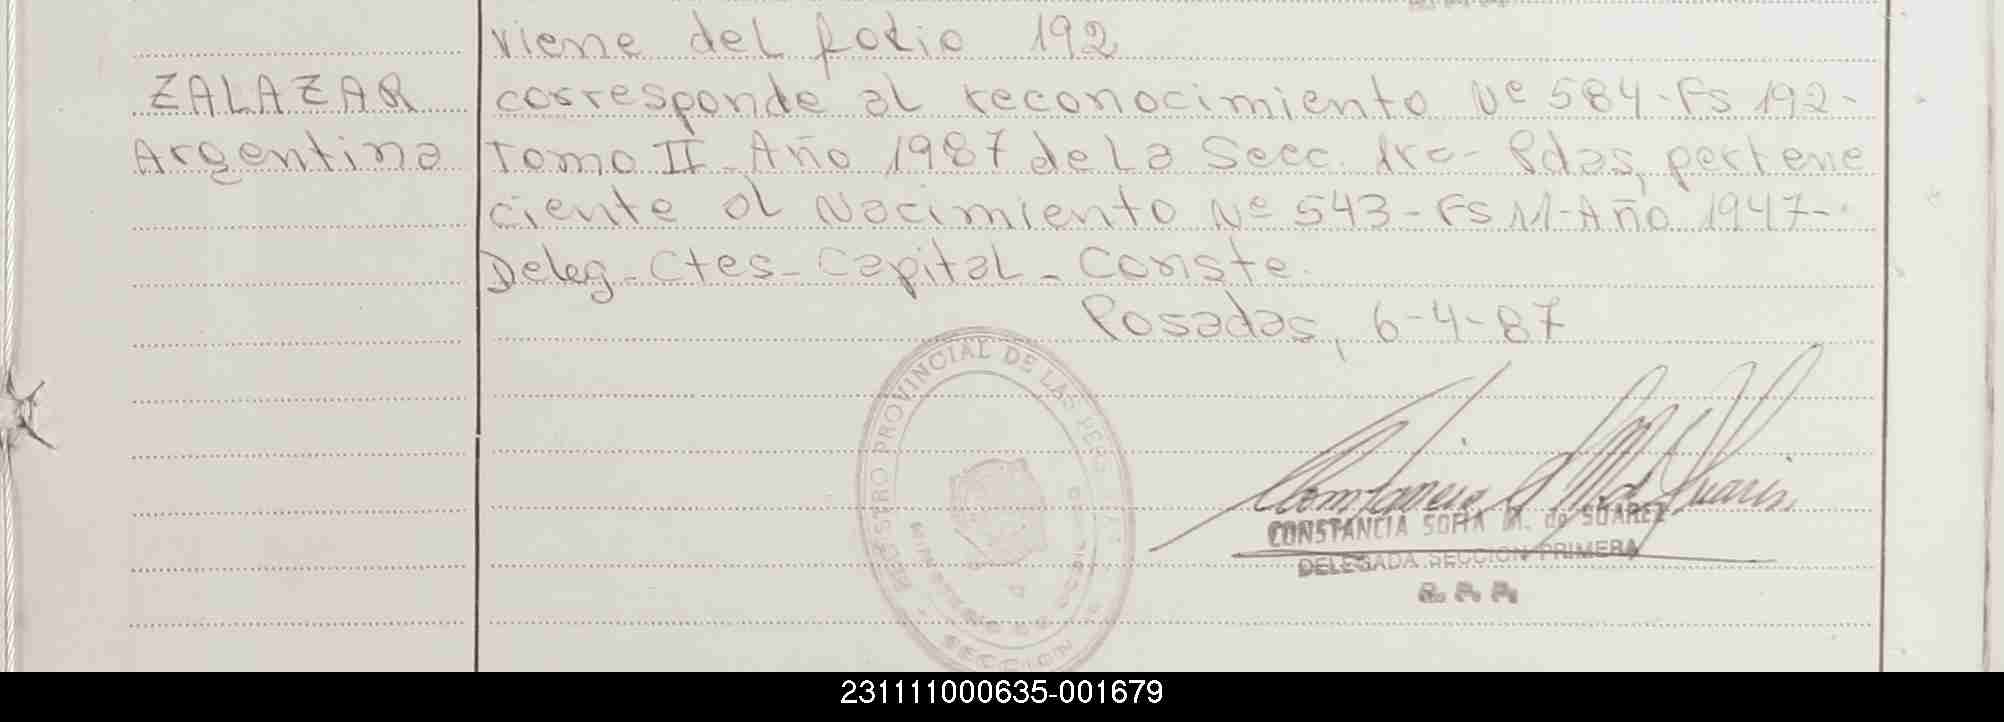 viene del folio 192
ZALAZAR
Argentina
corresponde al reconocimiento Nº 584-Fs 192-
Tomo II-Año 1987 de La Secc. 1ra- Pdas, pertene
ciente al Nacimiento Nº 543-Fs M-Año 1947-
Deleg-Ctes-Capital-Conste.
Posadas, 6-4-87
REGISTRO PROVINCIAL DE LAS PERS
MINISTERIO DE
SECCION
CONSTANCIA SOFIA M. de SUAREZ
DELEGADA SECCION PRIMERA
231111000635-001679